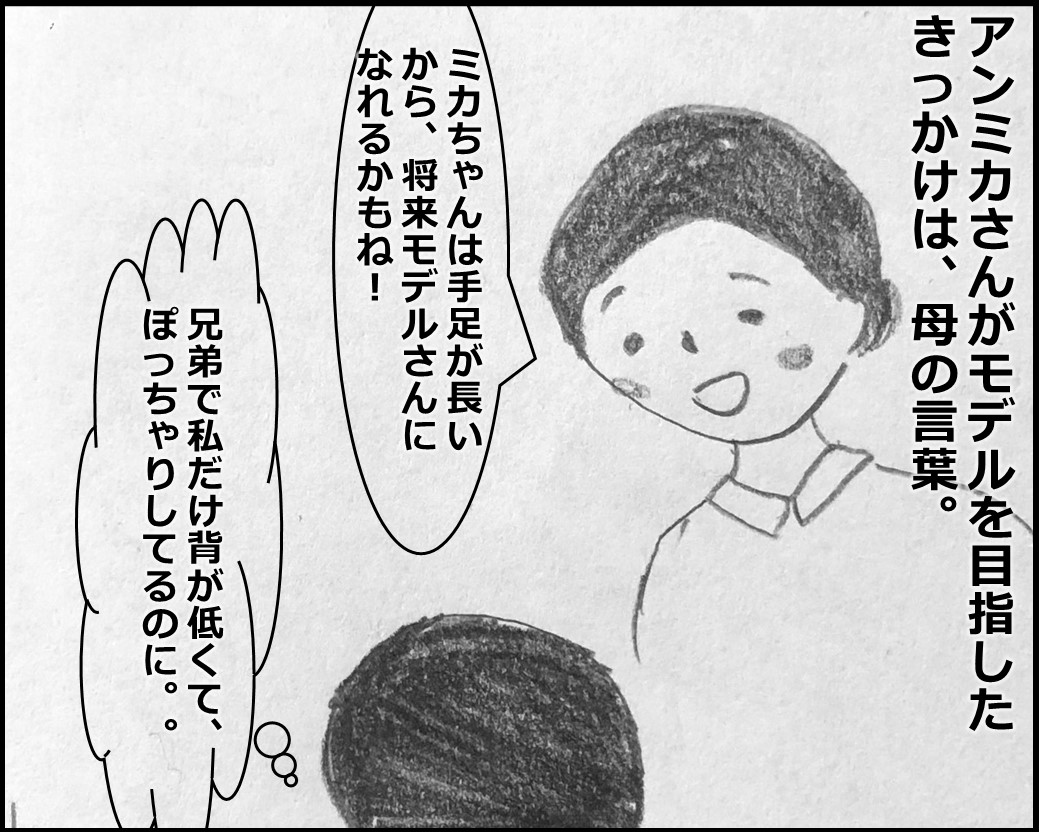 アンミカさんがモデルを目指した
きっかけは、母の言葉。
ミカちゃんは手足が長い
から、将来モデルさんに
なれるかもね！
兄弟で私だけ背が低くて、
ぽっちゃりしてるのに。。